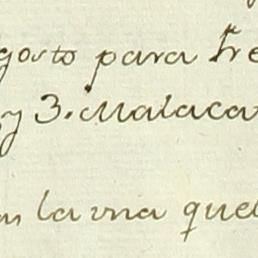 gosto para Fre
y 3. Malaca
la una que